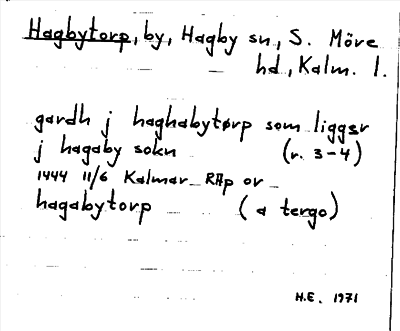 Hagbytorp, by, Hagby sn, S. Möre
hd, Kalm. l.
gardh j haghabytørp som liggær
j hagaby sokn (r. 3-4)
1444 11/6 Kalmar RAp or
hagabytorp (a tergo)
H.E. 1971